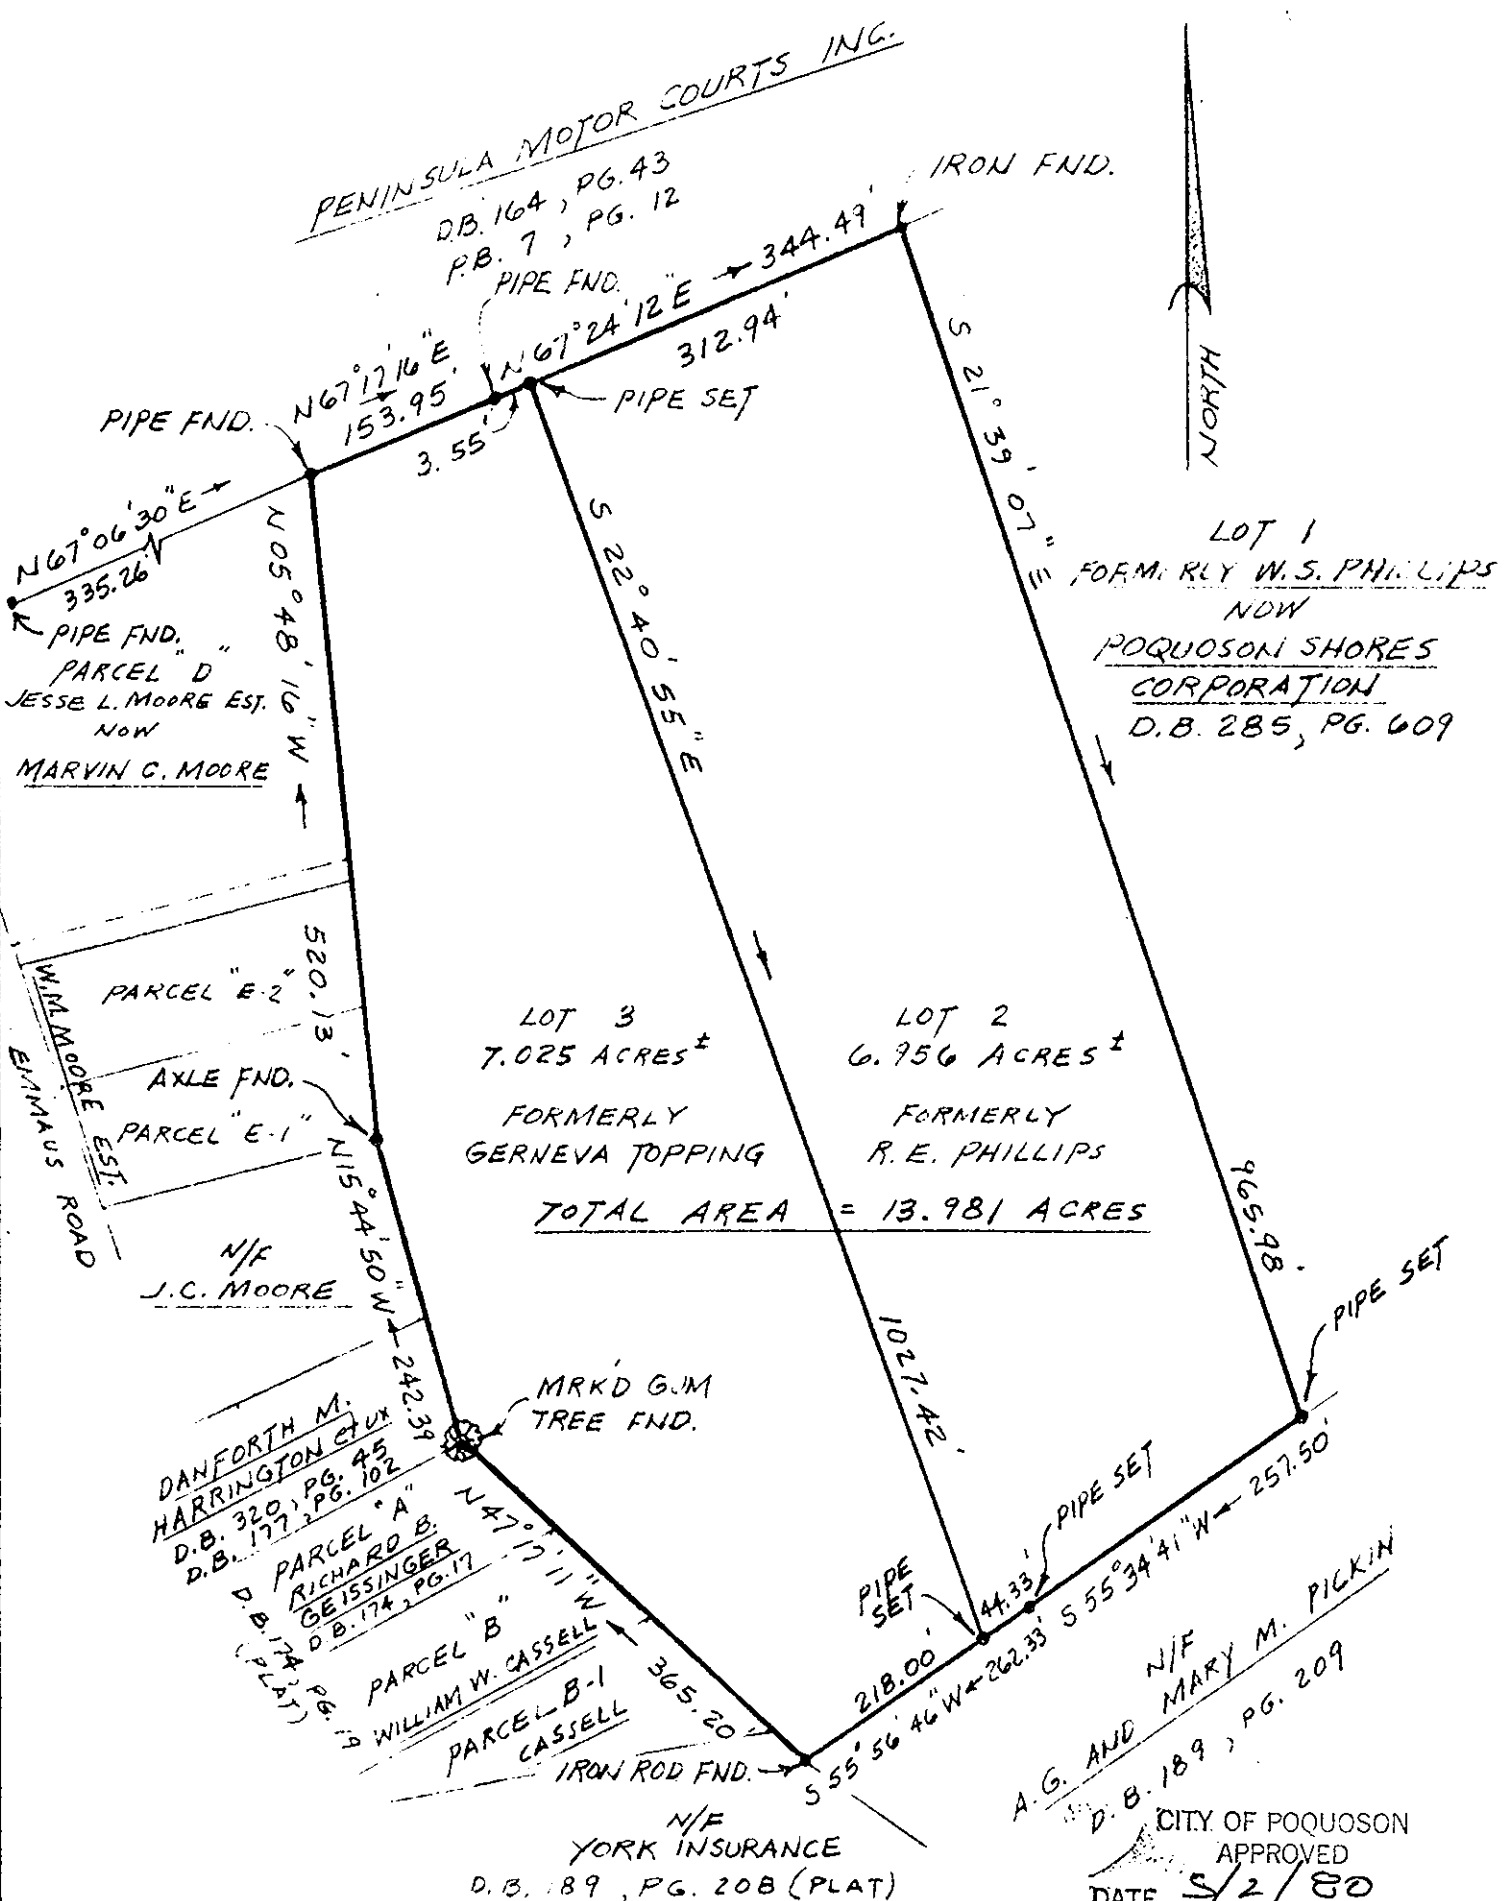 PENINSULA MOTOR COURTS INC.
D.B. 164, PG. 43
P.B. 7, PG. 12
PIPE FND.
IRON FND.
N 67° 24' 12" E → 344.49'
312.94'
N 67° 17' 16" E
153.95'
3.55'
PIPE SET
PIPE FND.
N 67° 06' 30" E →
335.26'
PIPE FND.
PARCEL "D"
JESSE L. MOORE EST.
NOW
MARVIN C. MOORE
N 05° 48' 16" W
520.13'
S 22° 40' 55" E
1027.42'
S 21° 39' 07" E
965.98'
NORTH
LOT 1
FORMERLY W.S. PHILLIPS
NOW
POQUOSON SHORES
CORPORATION
D.B. 285, PG. 609
PARCEL "E-2"
W.M. MOORE EST.
EMMAUS ROAD
AXLE FND.
PARCEL "E-1"
LOT 3
7.025 ACRES ±
FORMERLY
GERNEVA TOPPING
LOT 2
6.956 ACRES ±
FORMERLY
R.E. PHILLIPS
TOTAL AREA = 13.981 ACRES
N/F
J.C. MOORE
N 15° 44' 50" W ← 242.39
MRK'D GUM
TREE FND.
DANFORTH M.
HARRINGTON et ux
D.B. 320, PG. 45
D.B. 177, PG. 102
PARCEL "A"
RICHARD B.
GEISSINGER
D.B. 174, PG. 17
D.B. 174, PG. 19
(PLAT)
PARCEL "B"
WILLIAM W. CASSELL
PARCEL B-1
CASSELL
N 47° 17' 11" W
365.20'
IRON ROD FND.
PIPE SET
PIPE SET
PIPE
SET
218.00'
44.33'
S 55° 56' 46" W ← 262.33'
S 55° 34' 41" W ← 257.50'
N/F
A.G. AND MARY M. PICKIN
D.B. 189, PG. 209
N/F
YORK INSURANCE
D.B. 189, PG. 208 (PLAT)
CITY OF POQUOSON
APPROVED
DATE 5/2/80